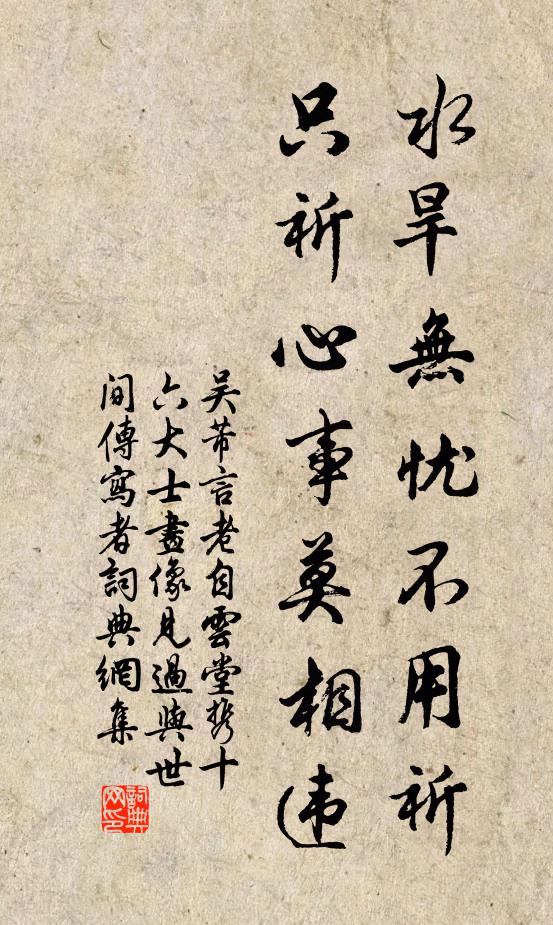 水旱無忧不用祈
只祈心事莫相违
吴芾言老自雲堂携十
六大士畫像見過與世
间傳寫者詞典網集
詞典网印